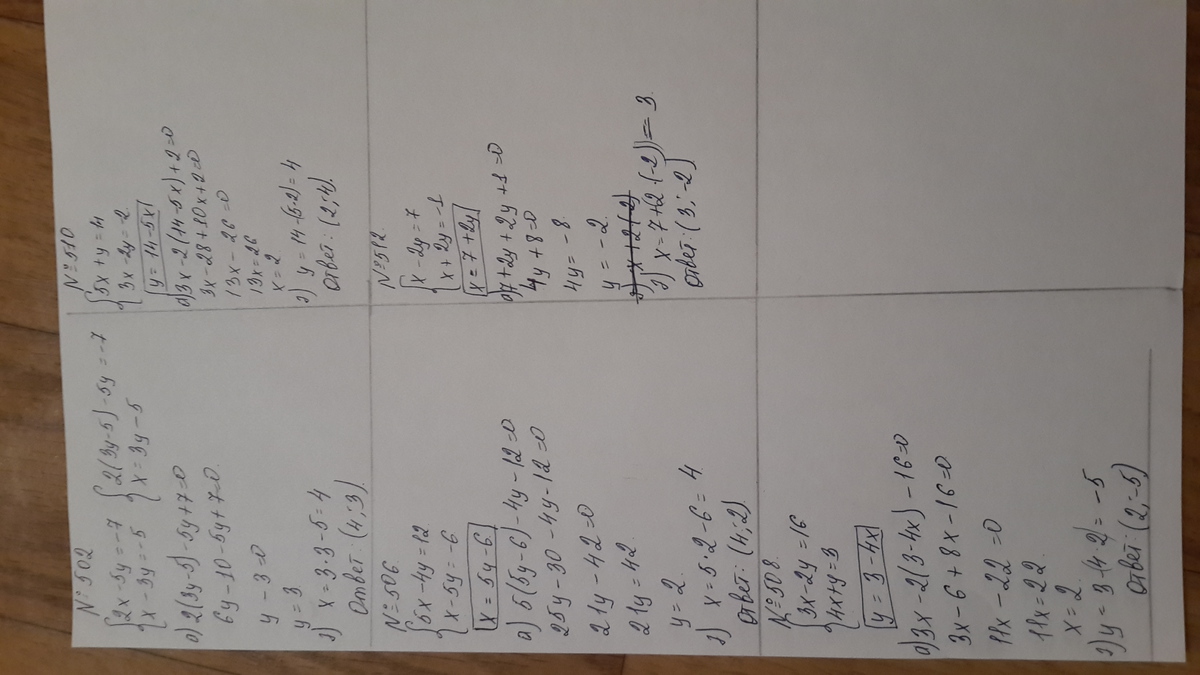 № 502
{2x-5y=-7 {2(3y-5)-5y=-7
{x-3y=-5 {x=3y-5
а) 2(3y-5)-5y+7=0
6y-10-5y+7=0
y-3=0
y=3
2) x=3·3-5=4
Ответ: (4;3).
№ 506
{5x-4y=12
{x-5y=-6
x=5y-6
а) 5(5y-6)-4y-12=0
25y-30-4y-12=0
21y-42=0
21y=42
y=2
2) x=5·2-6=4
Ответ: (4;2).
№ 508
{3x-2y=16
{4x+y=3
y=3-4x
а) 3x-2(3-4x)-16=0
3x-6+8x-16=0
11x-22=0
11x=22
x=2
2) y=3-(4·2)=-5
Ответ: (2;-5)
№ 510
{5x+y=14
{3x-2y=-2
y=14-5x
а) 3x-2(14-5x)+2=0
3x-28+10x+2=0
13x-26=0
13x=26
x=2
2) y=14-(5·2)=4
Ответ: (2;4).
№ 512
{x-2y=7
{x+2y=-1
x=7+2y
а) 7+2y+2y+1=0
4y+8=0
4y=-8
y=-2
2) x=7+(2·(-2))=3.
Ответ: (3;-2)